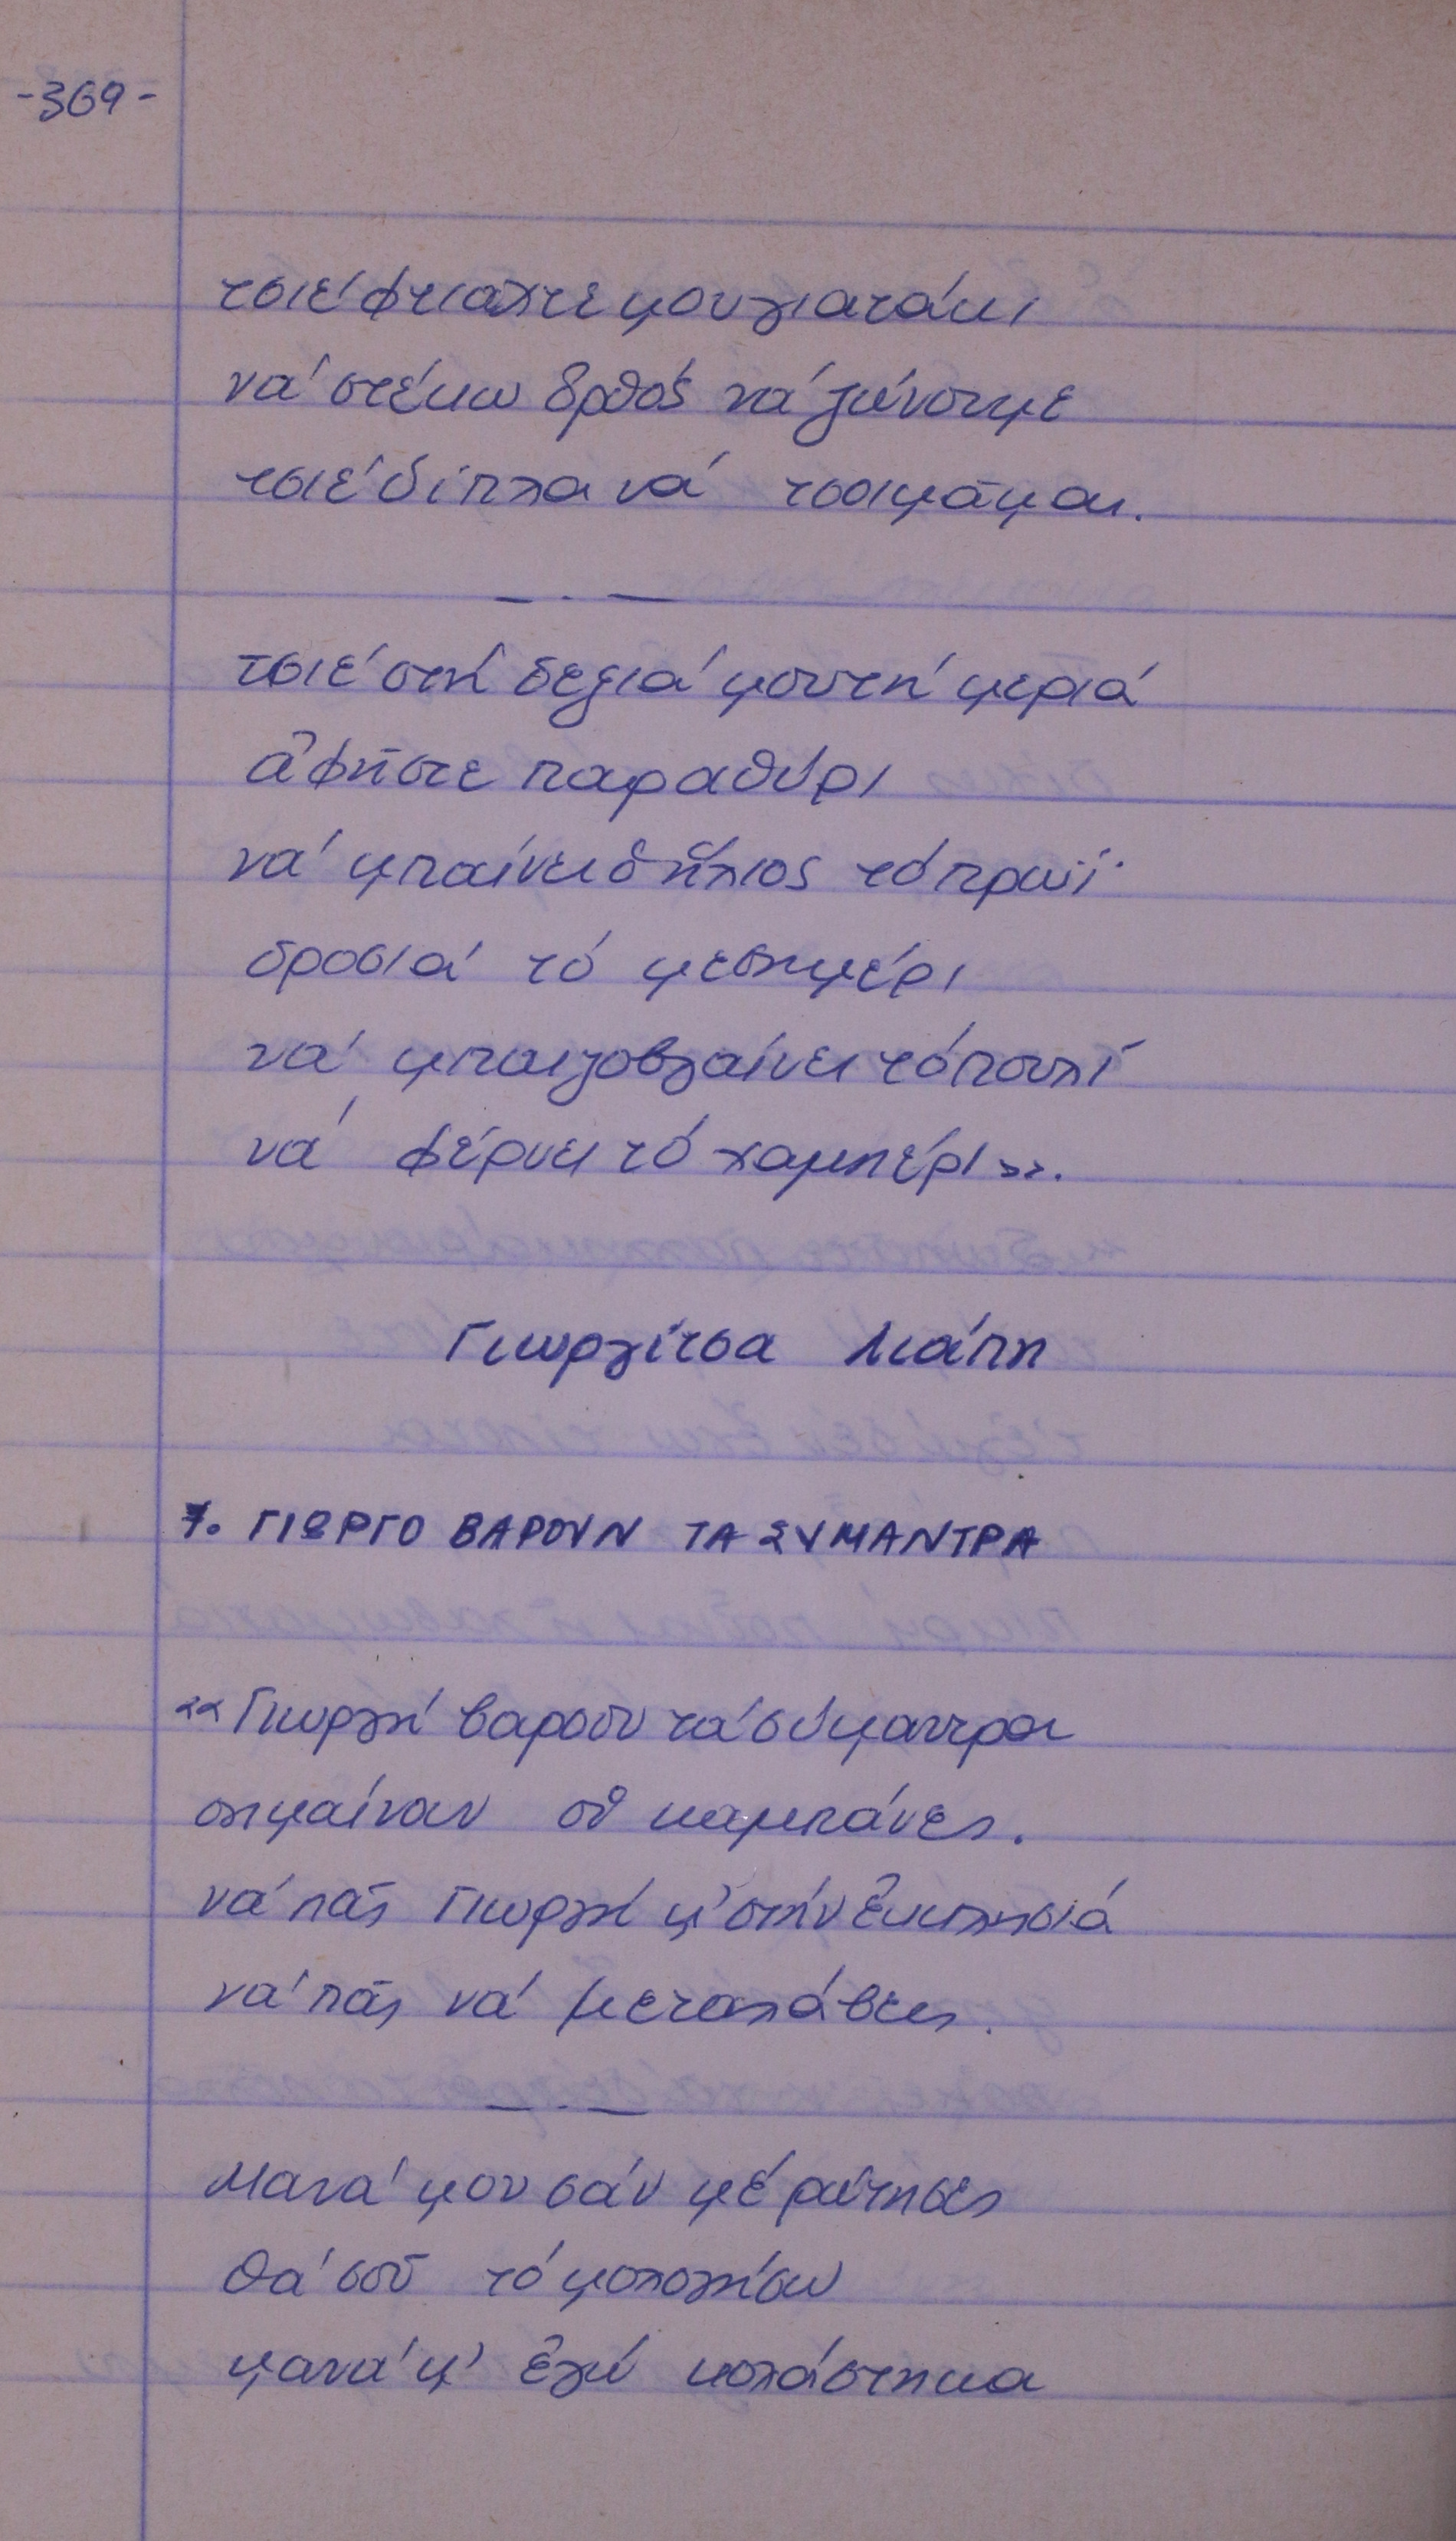 -369-
τσιέ φτιαχτε μου γιατάκι
νά στέκω ὀρθός νά ζώνουμε
τσιέ δίπλα νά τσοιμᾶμαι.
— . —
τσιέ στή δεξιά μου τή μεριά
ἀφῆστε παραθύρι
νά μπαίνει ὁ ἥλιος τό πρωΐ
δροσιά τό μεσημέρι
νά μπαιζοβγαίνει τό πουλί
νά φέρνει τό χαμπέρι».
Γιωργίτσα Λιάπη
7. ΓΙΩΡΓΟ ΒΑΡΟΥΝ ΤΑ ΣΥΜΑΝΤΡΑ
«Γιωργή βαροῦν τά σύμαντρα
σημαίναν οἱ καμπάνες.
νά πᾶς Γιωργή μ' στήν ἐκκλησιά
νά πᾶς νά μεταλάβεις.
— . —
Μανά μου σάν μέ ρώτησες
θά σοῦ τό μολογήσω
μανά μ' ἐγώ κολάστηκα